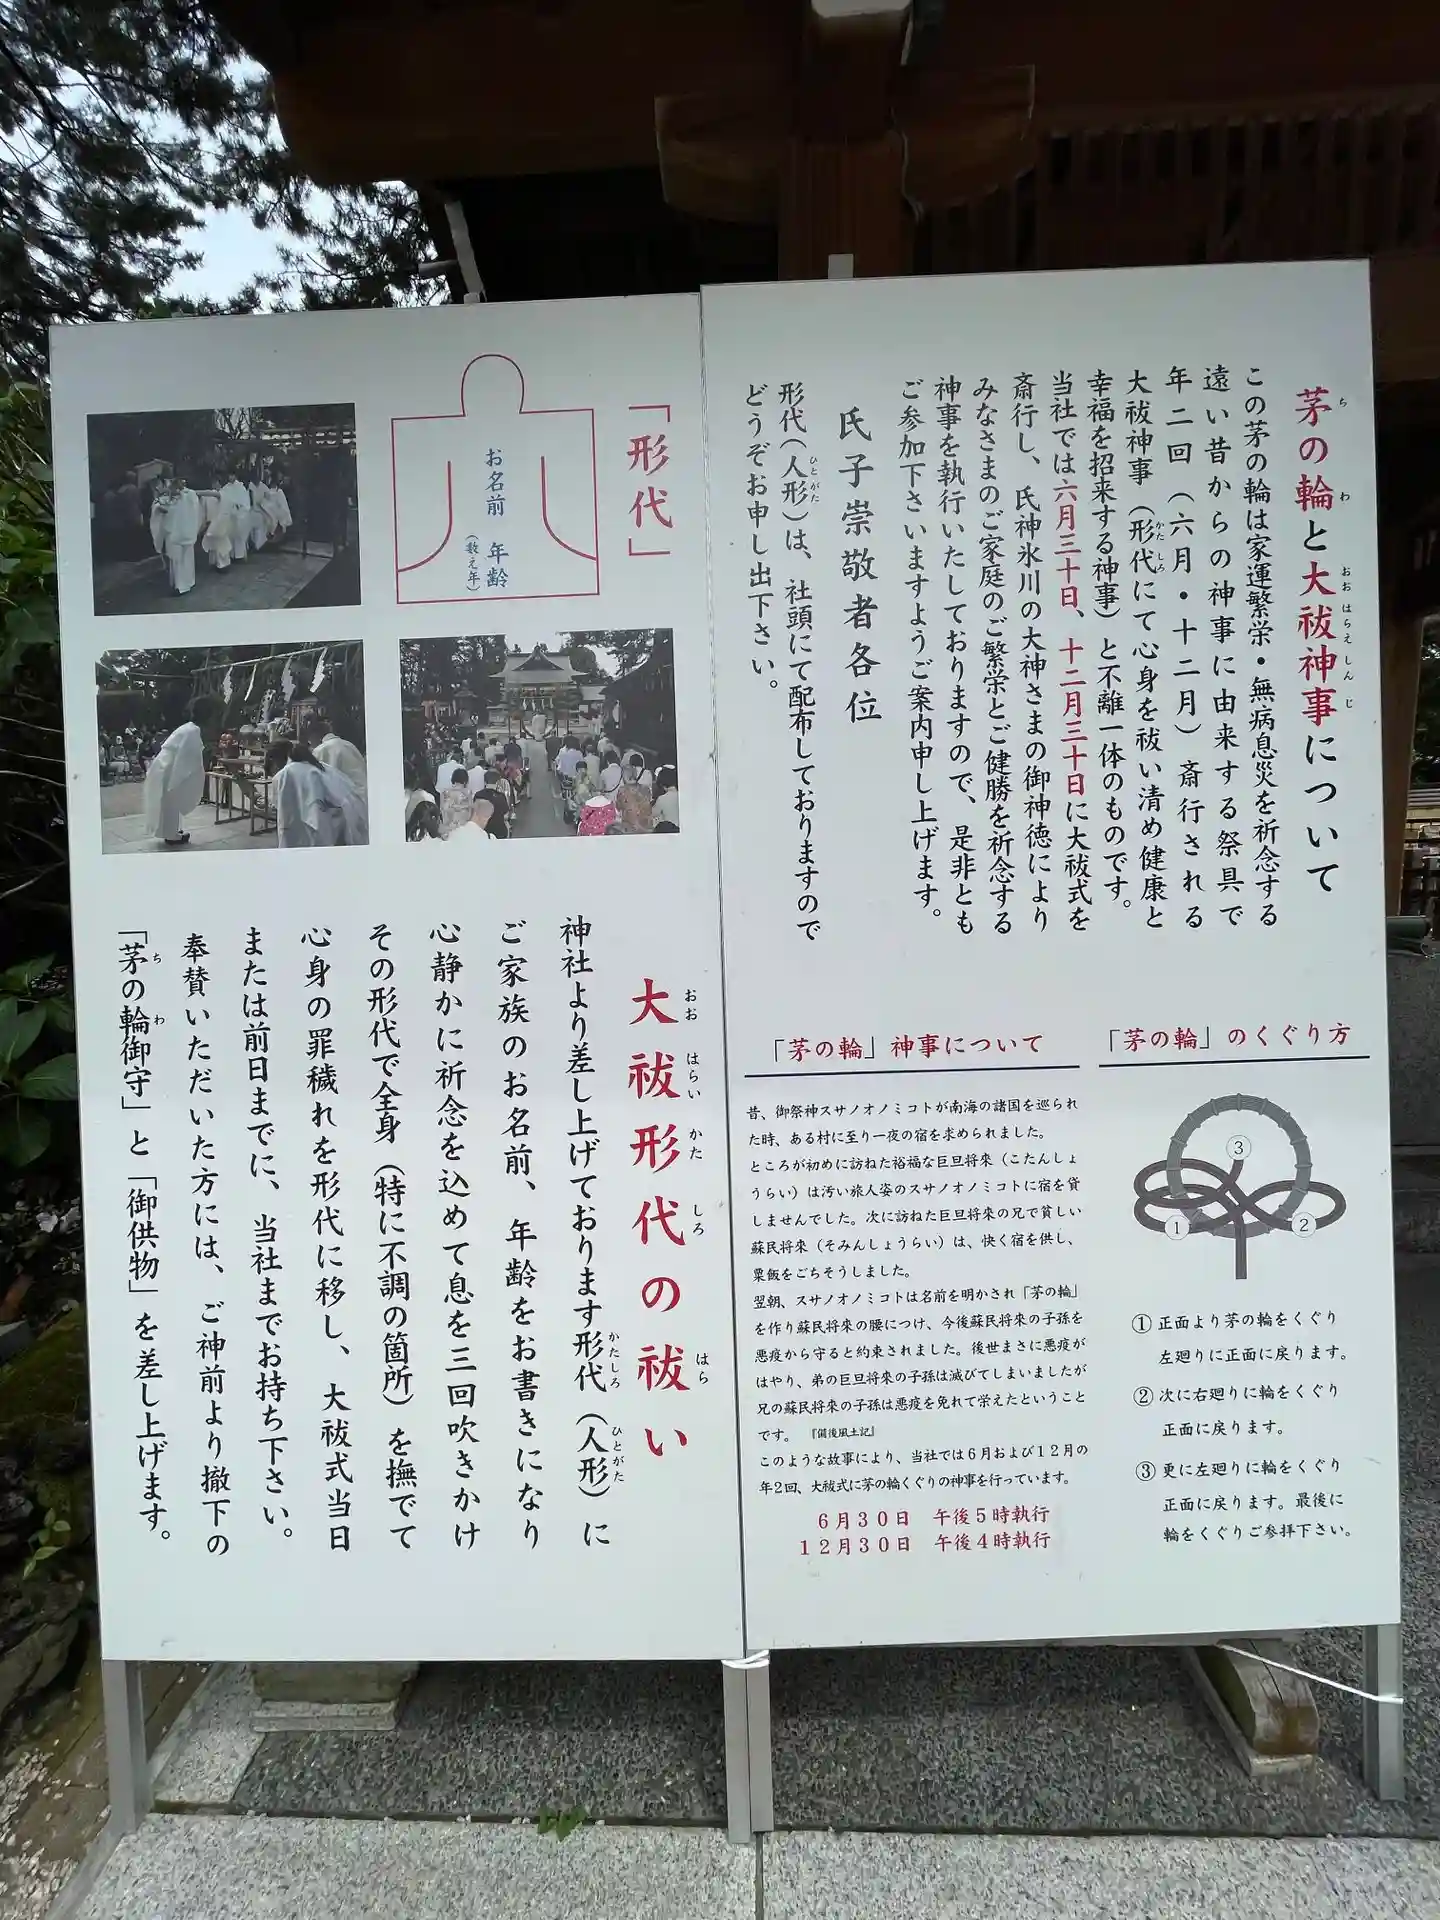 茅の輪と大祓神事について
この茅の輪は家運繁栄・無病息災を祈念する
遠い昔からの神事に由来する祭具で
年二回(六月・十二月)斎行される
大祓神事(形代にて心身を祓い清め健康と
幸福を招来する神事)と不離一体のものです。
当社では六月三十日、十二月三十日に大祓式を
斎行し、氏神氷川の大神さまの御神徳により
みなさまのご家庭のご繁栄とご健勝を祈念する
神事を執行いたしておりますので、是非とも
ご参加下さいますようご案内申し上げます。
氏子崇敬者各位
形代(人形)は、社頭にて配布しておりますので
どうぞお申し出下さい。
「茅の輪」のくぐり方
③
①
②
① 正面より茅の輪をくぐり
左廻りに正面に戻ります。
② 次に右廻りに輪をくぐり
正面に戻ります。
③ 更に左廻りに輪をくぐり
正面に戻ります。最後に
輪をくぐりご参拝下さい。
「茅の輪」神事について
昔、御祭神スサノオノミコトが南海の諸国を巡られ
た時、ある村に至り一夜の宿を求められました。
ところが初めに訪ねた裕福な巨旦将来(こたんしょ
うらい)は汚い旅人姿のスサノオノミコトに宿を貸
しませんでした。次に訪ねた巨旦将来の兄で貧しい
蘇民将来(そみんしょうらい)は、快く宿を供し、
粟飯をごちそうしました。
翌朝、スサノオノミコトは名前を明かされ「茅の輪」
を作り蘇民将来の腰につけ、今後蘇民将来の子孫を
悪疫から守ると約束されました。後世まさに悪疫が
はやり、弟の巨旦将来の子孫は滅びてしまいましたが
兄の蘇民将来の子孫は悪疫を免れて栄えたということ
です。『備後風土記』
このような故事により、当社では6月および12月の
年2回、大祓式に茅の輪くぐりの神事を行っています。
6月30日 午後5時執行
12月30日 午後4時執行
「形代」
お名前 年齢
(数え年)
大祓形代の祓い
神社より差し上げております形代(人形)に
ご家族のお名前、年齢をお書きになり
心静かに祈念を込めて息を三回吹きかけ
その形代で全身(特に不調の箇所)を撫でて
心身の罪穢れを形代に移し、大祓式当日
または前日までに、当社までお持ち下さい。
奉賛いただいた方には、ご神前より撤下の
「茅の輪御守」と「御供物」を差し上げます。